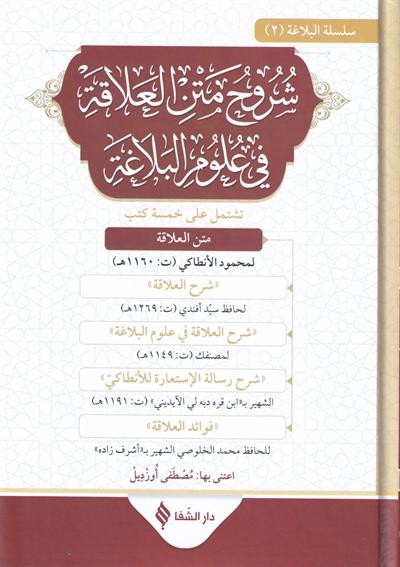 سلسلة البلاغة (٢)
شُرُوحُ مَتْنِ العَلَاقَةِ
فِي عُلُومِ البَلَاغَةِ
تشتمل على خمسة كتب
متن العلاقة
لمحمود الأنطاكي (ت: ١١٦٠هـ)
«شرح العلاقة»
لحافظ سيّد أفندي (ت: ١٢٦٩هـ)
«شرح العلاقة في علوم البلاغة»
لمصنفك (ت: ١١٤٩هـ)
«شرح رسالة الإستعارة للأنطاكيّ»
الشهير بـ«ابن قره دبه لي الآيديني» (ت: ١١٩١هـ)
«فوائد العلاقة»
للحافظ محمد الخلوصي الشهير بـ«أشرف زاده»
اعتنى بها: مُصْطَفى أُوزْدِيلْ
دار الشّفا